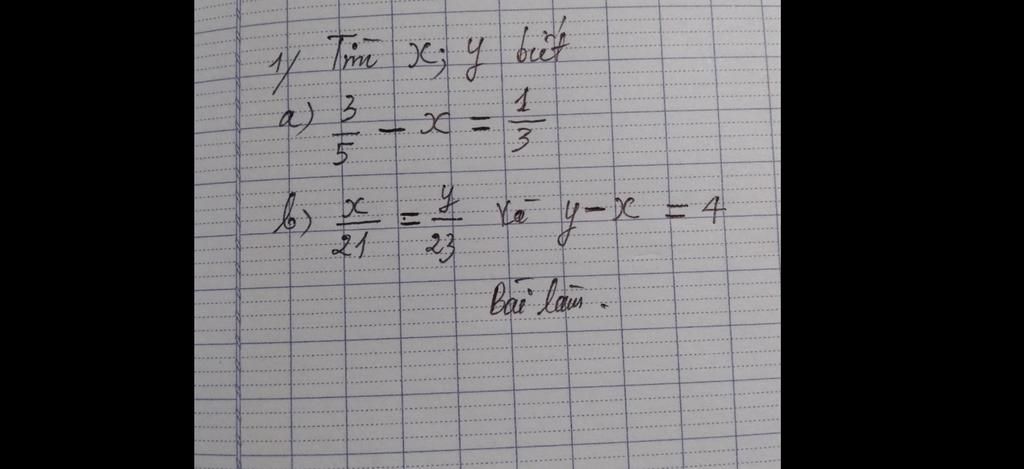 1/ Tìm x; y biết
a) 3/5 - x = 1/3
b) x/21 = y/23 và y - x = 4
Bài làm.